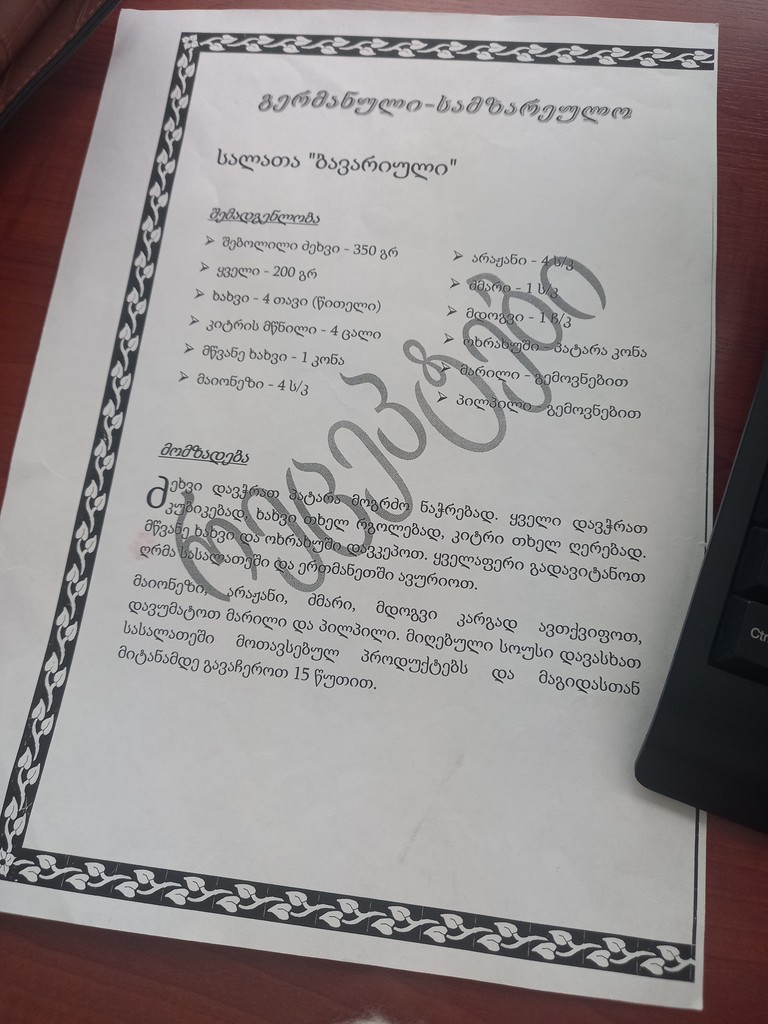 გერმანული-სამზარეულო
სალათა "ბავარიული"
შემადგენლობა
➢ შებოლილი ძეხვი - 350 გრ
➢ ყველი - 200 გრ
➢ ხახვი - 4 თავი (წითელი)
➢ კიტრის მწნილი - 4 ცალი
➢ მწვანე ხახვი - 1 კონა
➢ მაიონეზი - 4 ს/კ
➢ არაჟანი - 4 ს/კ
➢ ძმარი - 1 ს/კ
➢ მდოგვი - 1 ჩ/კ
➢ ოხრახუში - პატარა კონა
➢ მარილი - გემოვნებით
➢ პილპილი - გემოვნებით
რეცეპტები
მომზადება
ძეხვი დავჭრათ პატარა მოგრძო ნაჭრებად. ყველი დავჭრათ
კუბიკებად, ხახვი თხელ რგოლებად, კიტრი თხელ ღერებად.
მწვანე ხახვი და ოხრახუში დავკეპოთ. ყველაფერი გადავიტანოთ
ღრმა სასალათეში და ერთმანეთში ავურიოთ.
მაიონეზი, არაჟანი, ძმარი, მდოგვი კარგად ავთქვიფოთ,
დავუმატოთ მარილი და პილპილი. მიღებული სოუსი დავასხათ
სასალათეში მოთავსებულ პროდუქტებს და მაგიდასთან
მიტანამდე გავაჩეროთ 15 წუთით.
Ctr